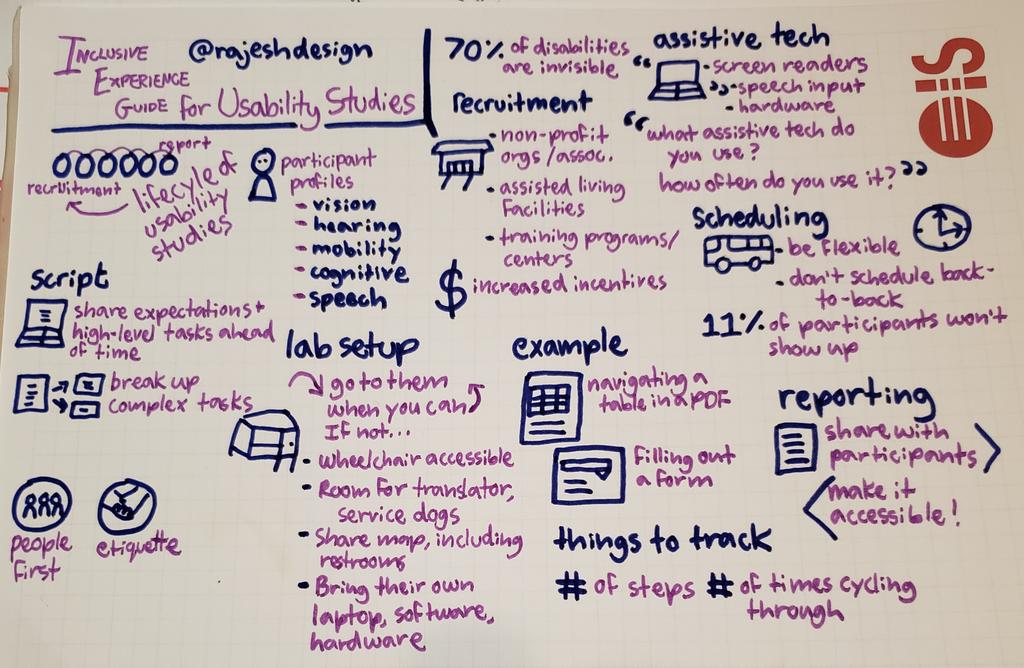 Inclusive
Experience
Guide for Usability Studies
@rajeshdesign
report
recruitment
lifecyle of
usability
studies
participant
profiles
- vision
- hearing
- mobility
- cognitive
- speech
70% of disabilities
are invisible
recruitment
• non-profit
orgs/assoc.
• assisted living
facilities
• training programs/
centers
$ increased incentives
assistive tech
• screen readers
• speech input
• hardware
"what assistive tech do
you use?
how often do you use it?"
SiO
scheduling
• be flexible
• don't schedule back-
to-back
11% of participants won't
show up
script
share expectations +
high-level tasks ahead
of time
break up
complex tasks
people
first
etiquette
lab setup
go to them
when you can
If not...
• wheelchair accessible
• Room for translator,
service dogs
• Share map, including
restrooms
• Bring their own
laptop, software,
hardware
example
navigating a
table in a PDF
filling out
a form
things to track
# of steps # of times cycling
through
reporting
share with
participants
make it
accessible!